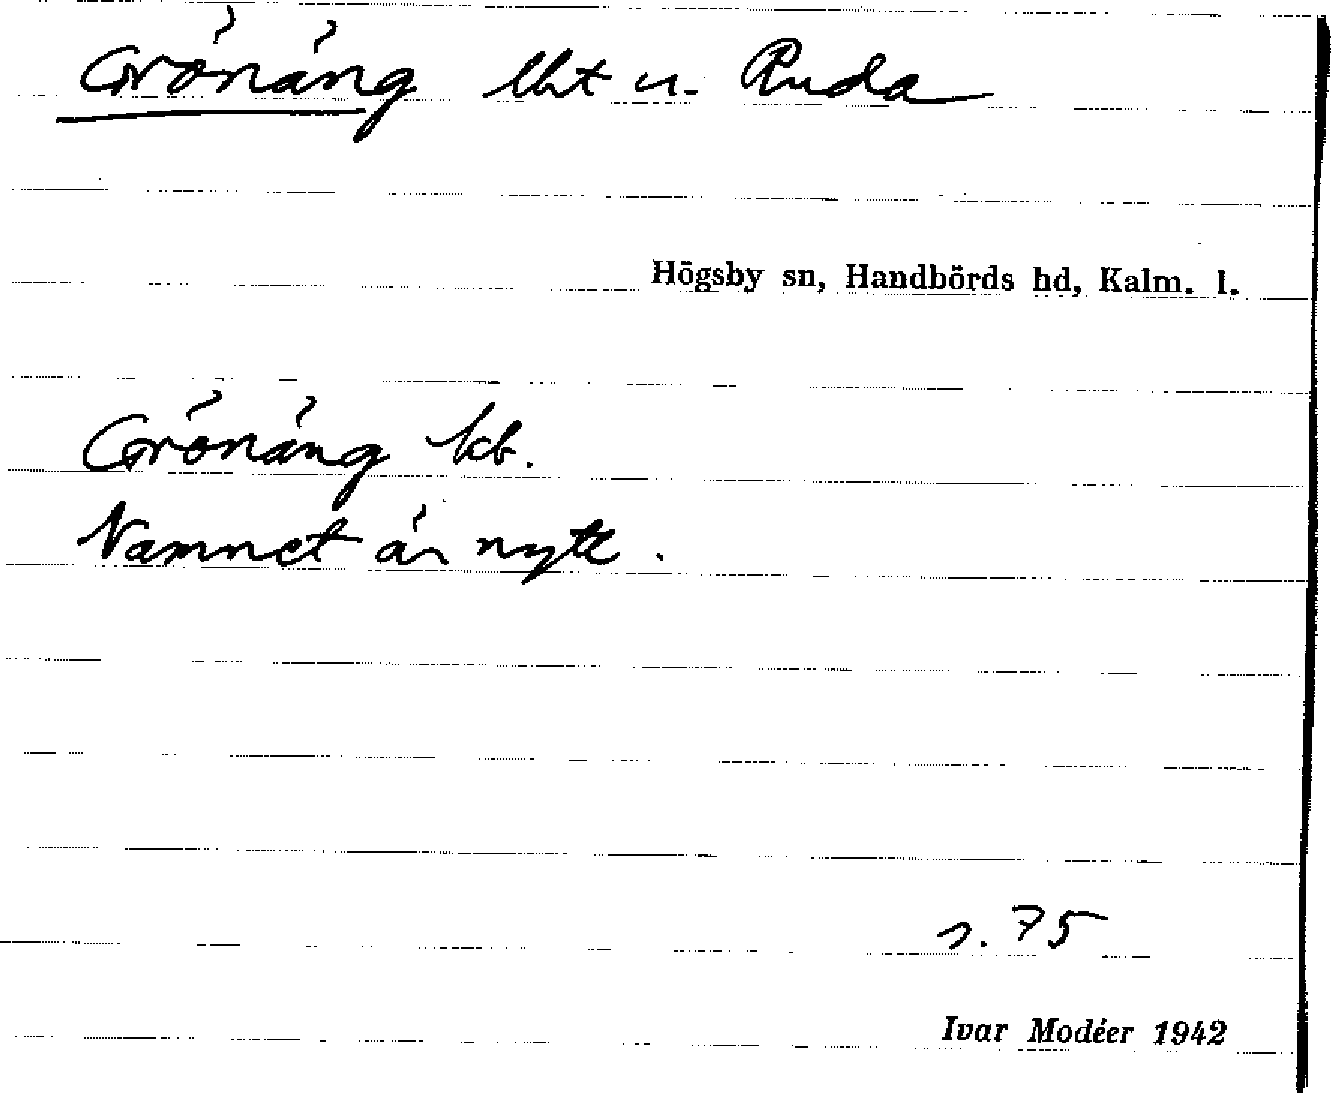 Grönäng lht u. Ruda
Högsby sn, Handbörds hd, Kalm. l.
Grönäng kb.
Namnet är nytt.
s. 75
Ivar Modéer 1942